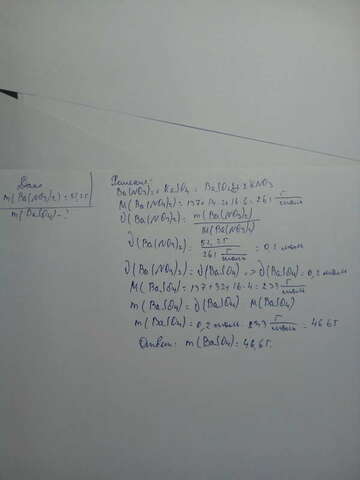 Дано
m(Ba(NO3)2) = 52,2г
m(BaSO4) - ?
Решение:
Ba(NO3)2 + K2SO4 = BaSO4↓ + 2KNO3
M(Ba(NO3)2) = 137+14·2+16·6 = 261 г/моль
ν(Ba(NO3)2) = m(Ba(NO3)2) / M(Ba(NO3)2)
ν(Ba(NO3)2) = 52,2г / 261 г/моль = 0,2 моль
ν(Ba(NO3)2) = ν(BaSO4) => ν(BaSO4) = 0,2 моль
M(BaSO4) = 137+32+16·4 = 233 г/моль
m(BaSO4) = ν(BaSO4) · M(BaSO4)
m(BaSO4) = 0,2 моль · 233 г/моль = 46,6г
Ответ: m(BaSO4) = 46,6г.